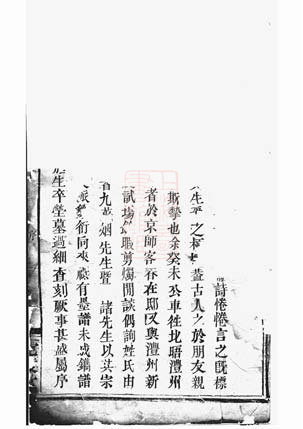 詩惓惓言之旣標
生平之 蓋古人之於朋友親
斯摯也余癸未公車北晤澧州
者於京師客春在邸又與澧州新
試塲 暇剪燭閒談偶詢姓氏由
九 烟先生暨 諸先生以其宗
銜同來 有墨譜未成鐫譜
生卒塋墓過細查刻厥事甚盛屬序